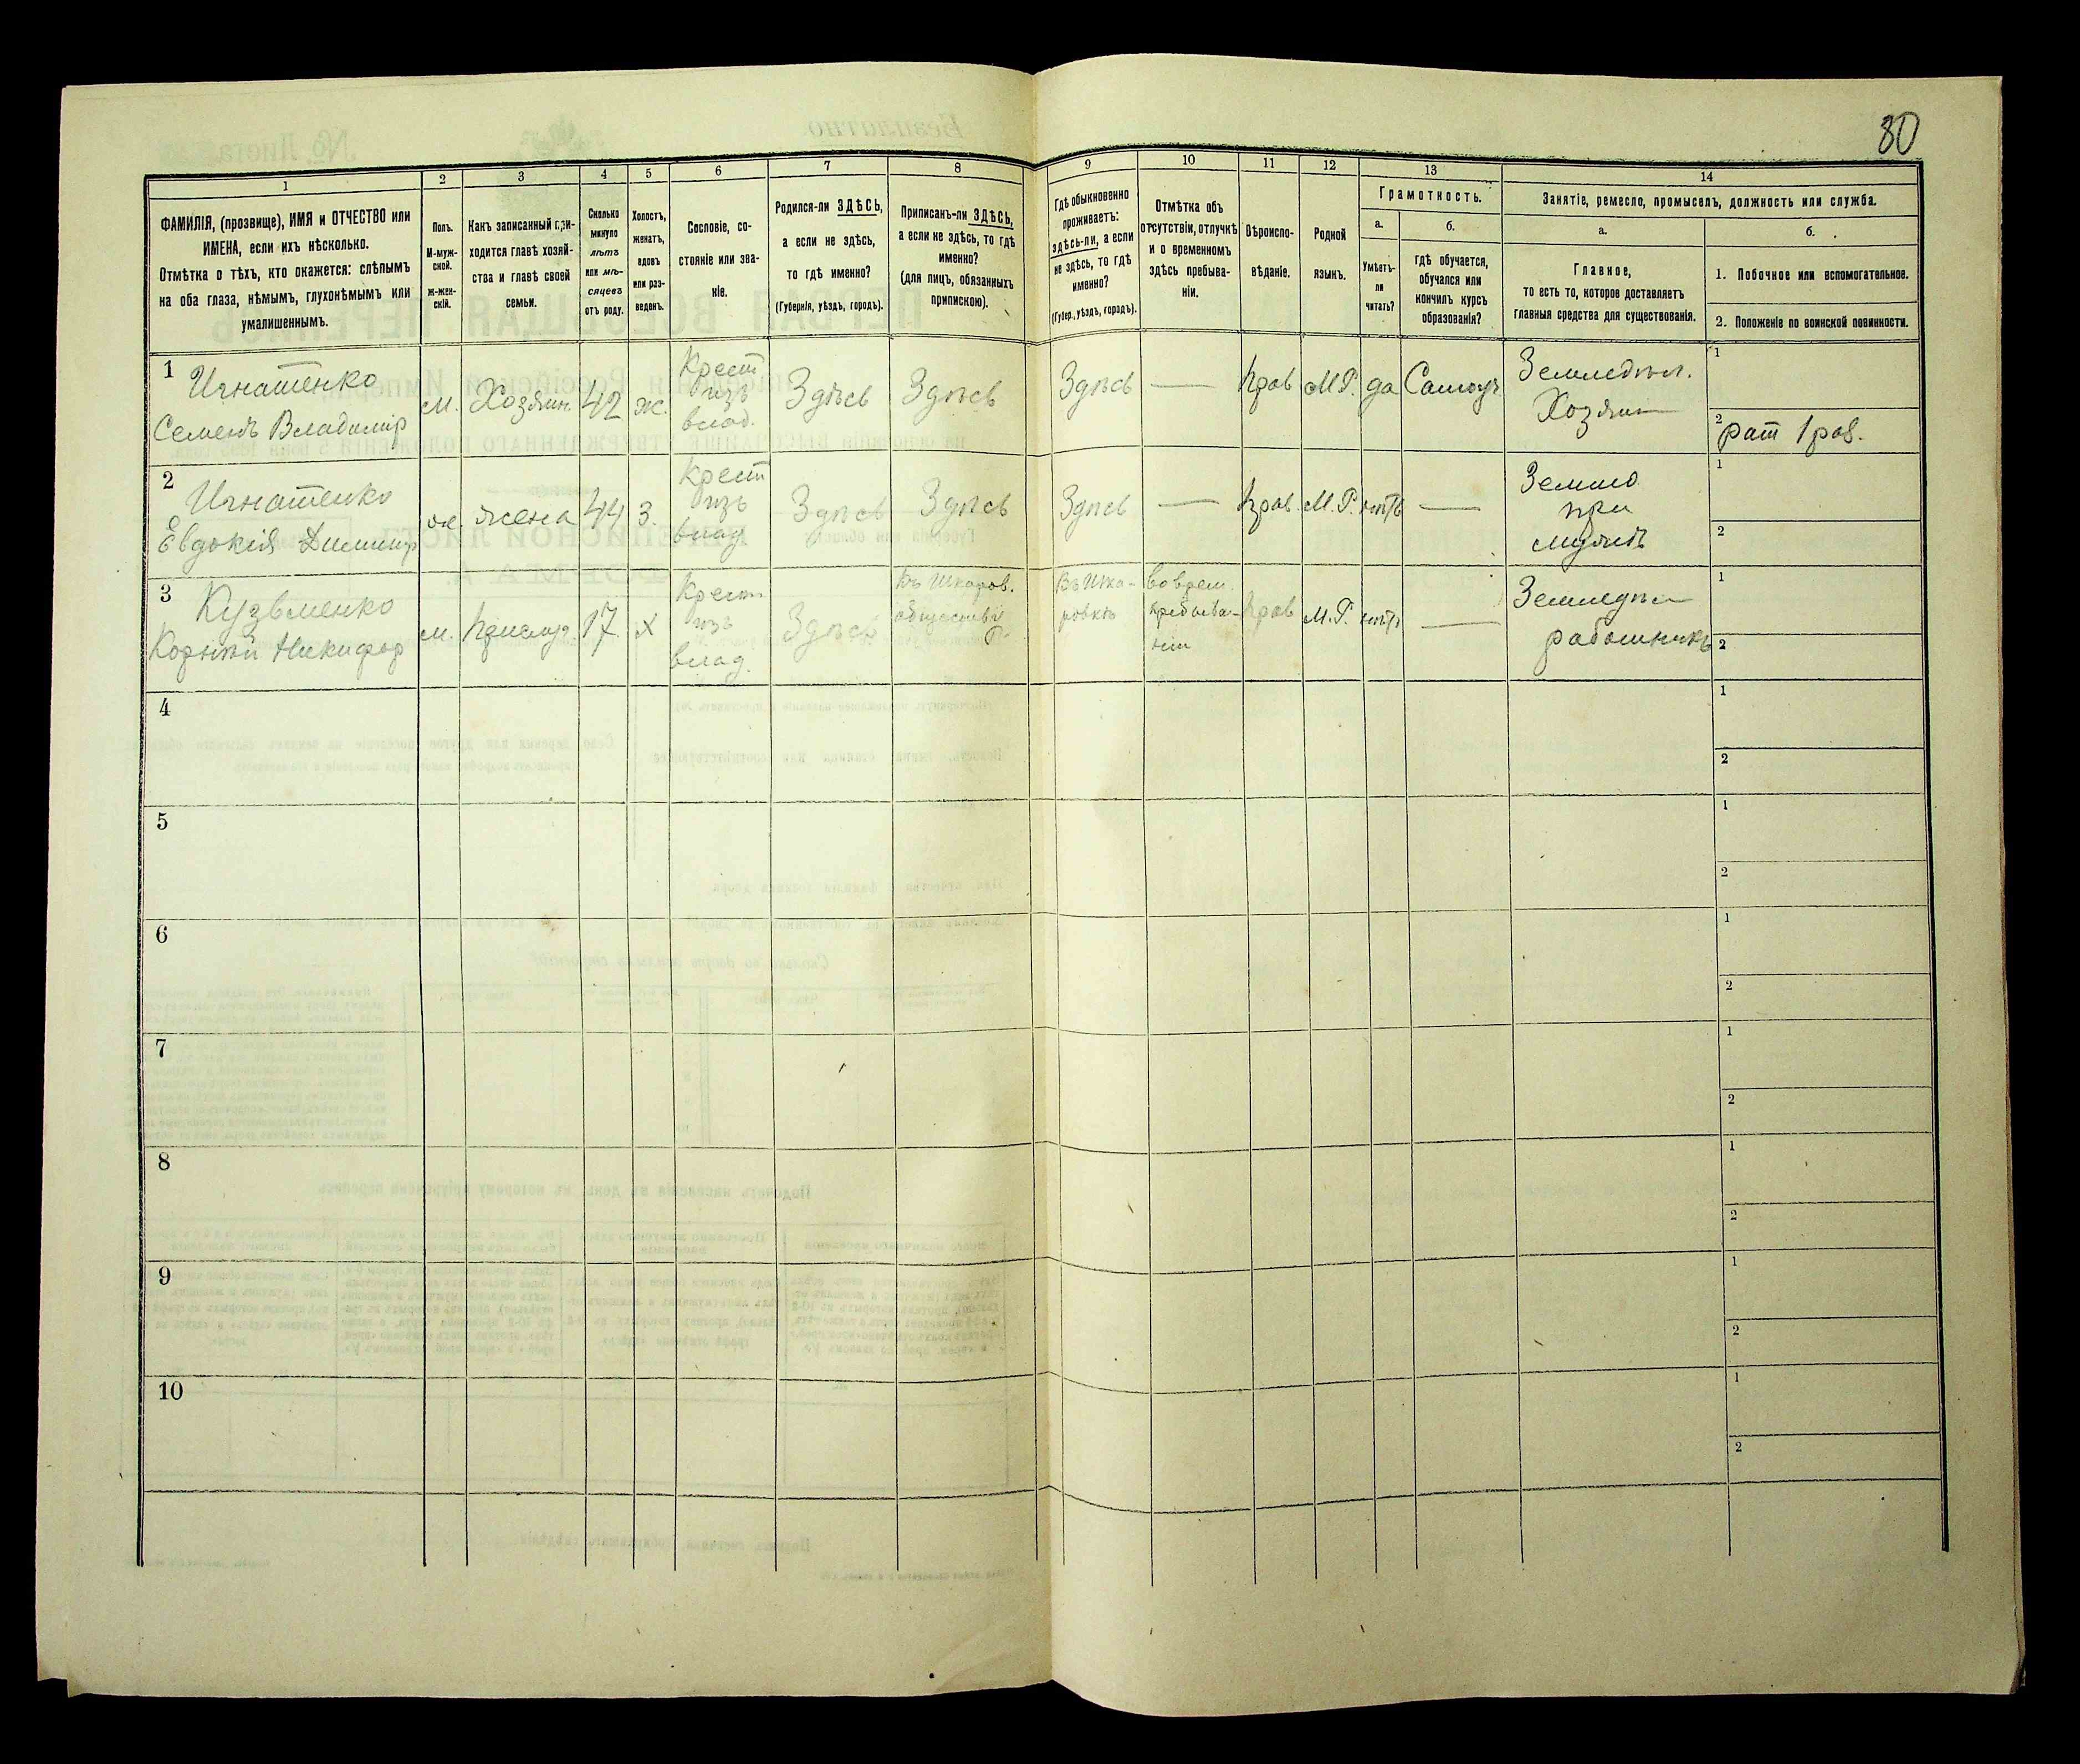 80
1
2
3
4
5
6
7
8
9
10
11
12
13
14
ФАМИЛІЯ, (прозвище), ИМЯ и ОТЧЕСТВО или
ИМЕНА, если ихъ нѣсколько.
Отмѣтка о тѣхъ, кто окажется: слѣпымъ
на оба глаза, нѣмымъ, глухонѣмымъ или
умалишеннымъ.
Полъ.
М-муж-
ской.
ж-жен-
скій.
Какъ записанный при-
ходится главѣ хозяй-
ства и главѣ своей
семьи.
Сколько
минуло
лѣтъ
или мѣ-
сяцевъ
отъ роду.
Холостъ,
женатъ,
вдовъ
или раз-
веденъ.
Сословіе, со-
стояніе или зва-
ніе.
Родился-ли ЗДѢСЬ,
а если не здѣсь,
то гдѣ именно?
(Губернія, уѣздъ, городъ).
Приписанъ-ли ЗДѢСЬ,
а если не здѣсь, то гдѣ
именно?
(для лицъ, обязанныхъ
припискою).
Гдѣ обыкновенно
проживаетъ:
здѣсь-ли, а если
не здѣсь, то гдѣ
именно?
(Губер., уѣздъ, городъ).
Отмѣтка объ
отсутствіи, отлучкѣ
и о временномъ
здѣсь пребыва-
ніи.
Вѣроиспо-
вѣданіе.
Родной
языкъ.
Грамотность.
а.
Умѣетъ-
ли
читать?
б.
гдѣ обучается,
обучался или
кончилъ курсъ
образованія?
Занятіе, ремесло, промыселъ, должность или служба.
а.
Главное,
то есть то, которое доставляетъ
главныя средства для существованія.
б.
1. Побочное или вспомогательное.
2. Положеніе по воинской повинности.
1
Игнатенко
Семенъ Владимір
м.
Хозяин.
42
ж.
Крест
изъ
влад.
Здѣсь
Здѣсь
Здѣсь
—
Прав
М.Р.
да
Самоуч
Земледѣл.
Хозяин
1
2
рат 1 раз.
2
Игнатенко
Евдокія Димитр
ж.
жена
44
З.
Крест
изъ
влад
Здѣсь
Здѣсь
Здѣсь
—
Прав.
М.Р.
нѣтъ
—
Землед
при
мужѣ
1
2
3
Кузьменко
Корній Никифор
м.
Прислуг.
17
Х
Крест
изъ
влад.
Здѣсь
Въ Шкаров.
обществѣ
Въ Шка-
ровкѣ
во врем.
пребыва-
ніи
Прав
М.Р.
нѣтъ
—
Земледѣл
работникъ
1
2
4
1
2
5
1
2
6
1
2
7
1
2
8
1
2
9
1
2
10
1
2